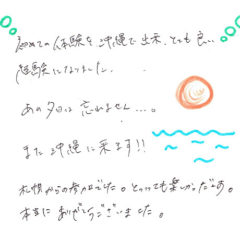 初めての体験を沖縄で出来、とても良い
経験になりました。
あの夕日は忘れません…。
また沖縄に来ます!!
札幌からの参加でした。とっても楽しかったです。
本当にありがとうございました。